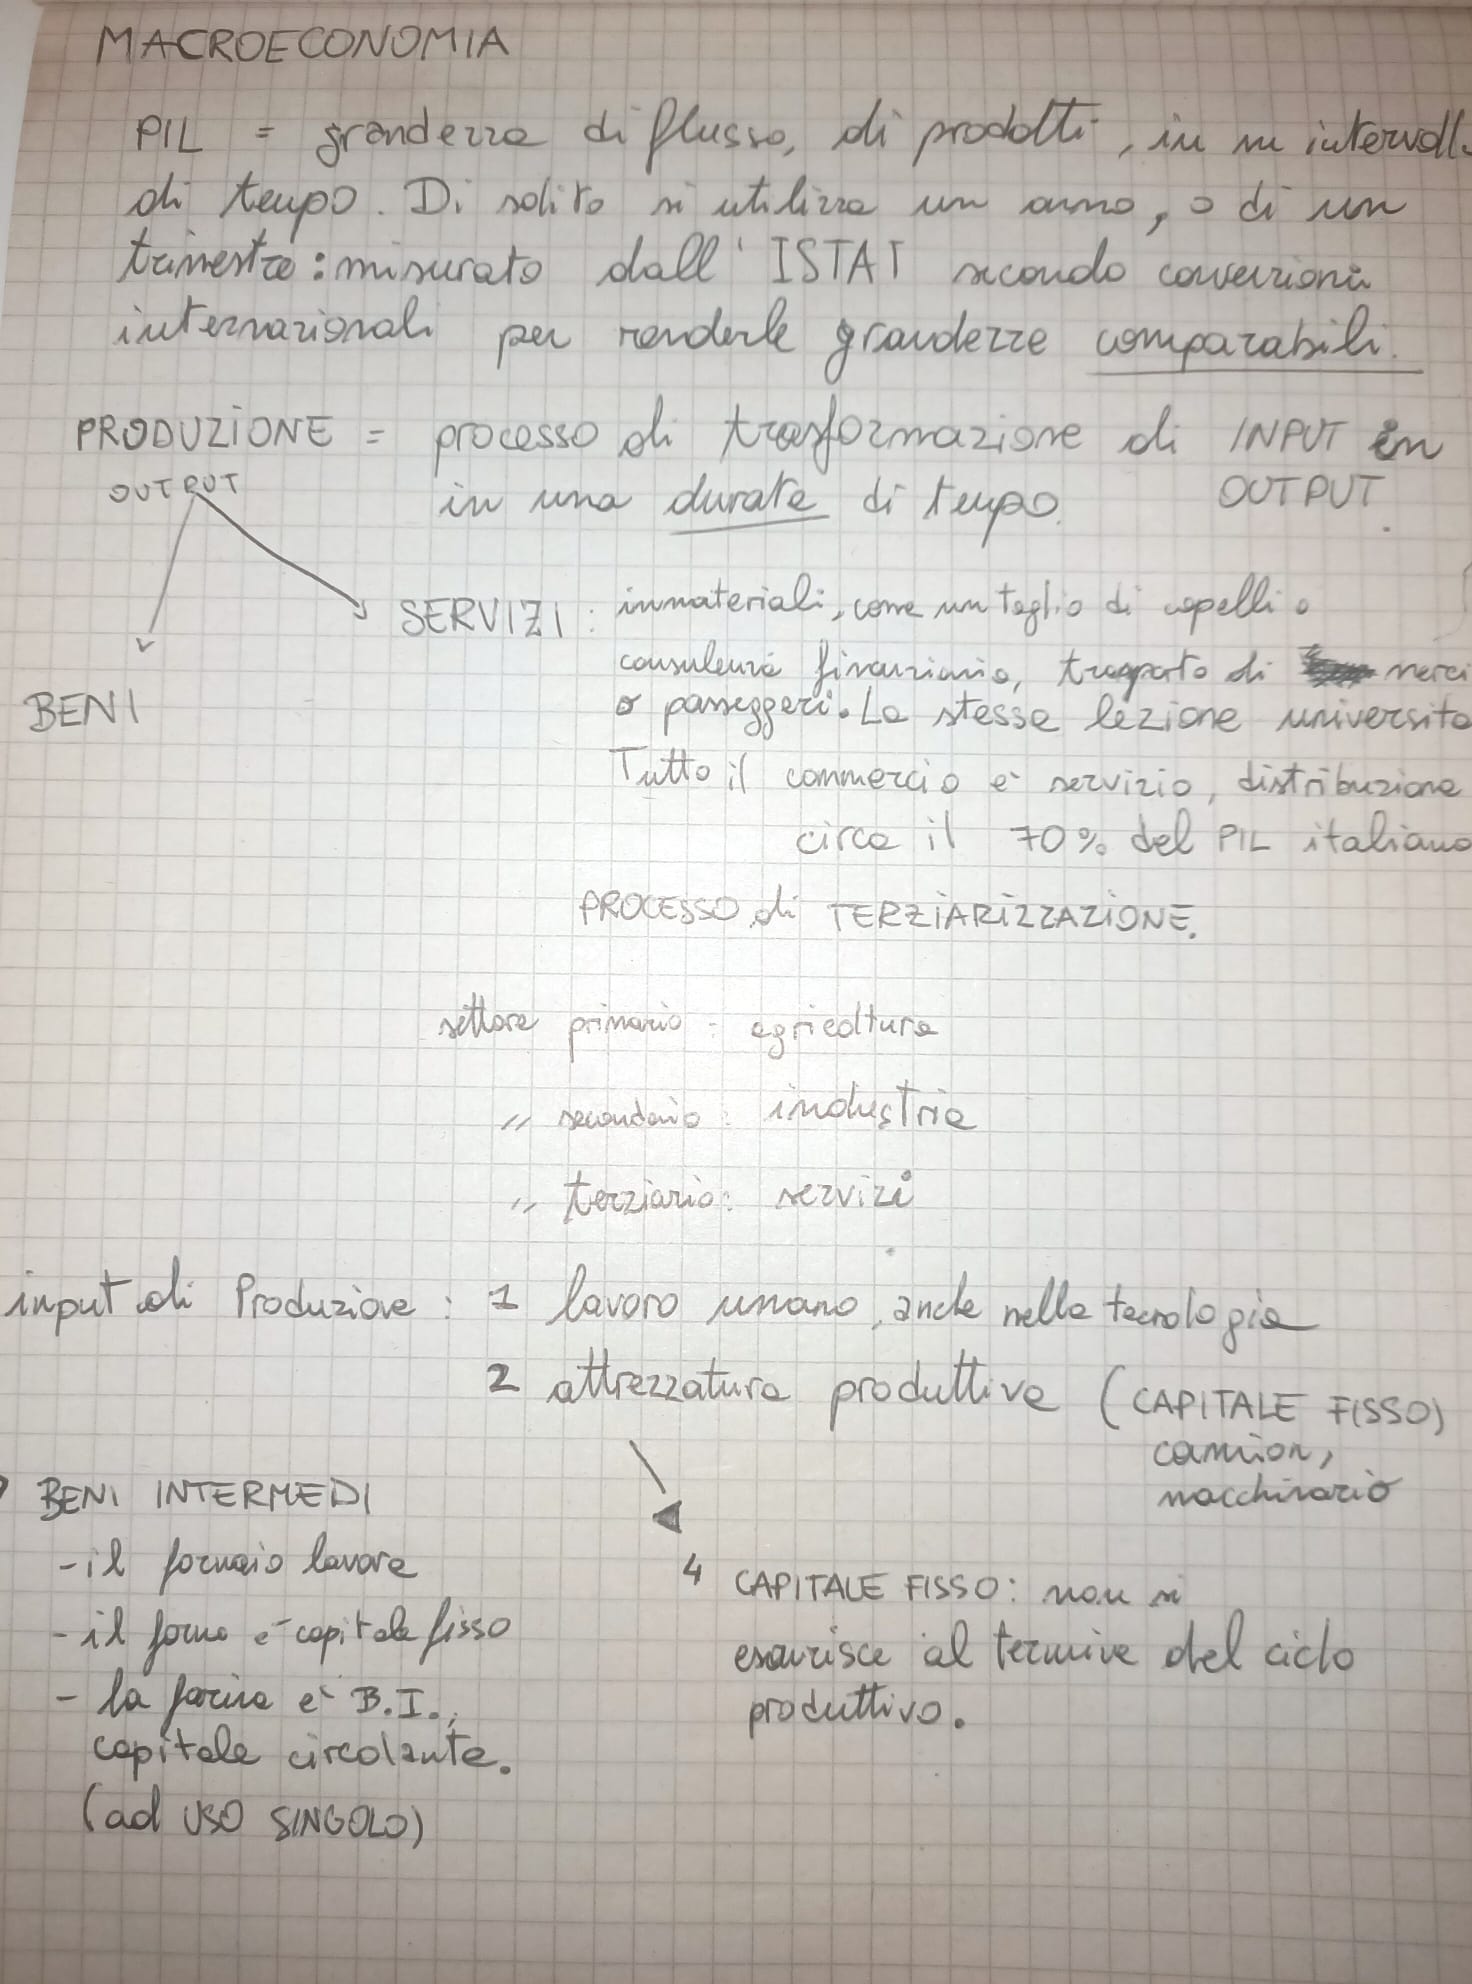 MACROECONOMIA
PIL = grandezza di flusso, di prodotti, in un intervall
di tempo. Di solito si utilizza un anno, o di un
trimestre: misurato dall'ISTAT secondo convenzioni
internazionali per renderle grandezze comparabili.
PRODUZIONE = processo di trasformazione di INPUT in
OUTPUT
in una durata di tempo. OUTPUT.
SERVIZI: immateriali, come un taglio di capelli o
consulenza finanziaria, trasporto di merci
o passeggeri. La stessa lezione universita
BENI
Tutto il commercio è servizio, distribuzione
circa il 70% del PIL italiano
PROCESSO di TERZIARIZZAZIONE.
settore primario: agricoltura
" secondario: industria
" terziario: servizi
input di Produzione: 1 lavoro umano, anche nella tecnologia
2 attrezzatura produttiva (CAPITALE FISSO)
camion,
macchinario
BENI INTERMEDI
- il fornaio lavora
- il forno è capitale fisso
- la farina è B.I.,
capitale circolante.
(ad USO SINGOLO)
4 CAPITALE FISSO: non si
esaurisce al termine del ciclo
produttivo.